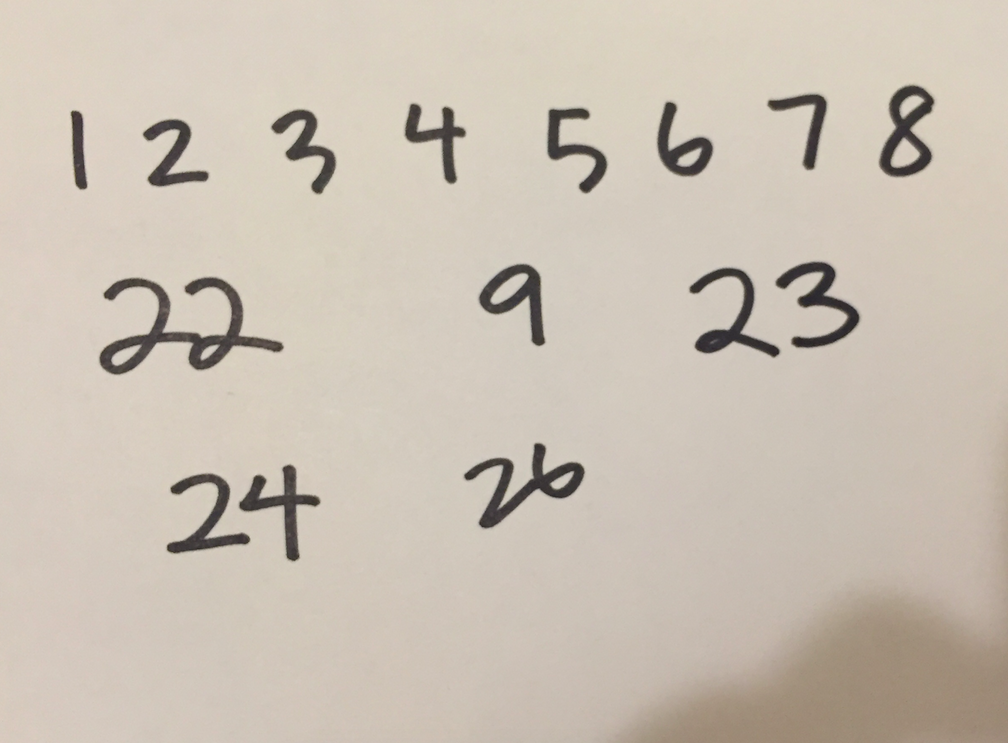 1 2 3 4 5 6 7 8
22 9 23
24 26